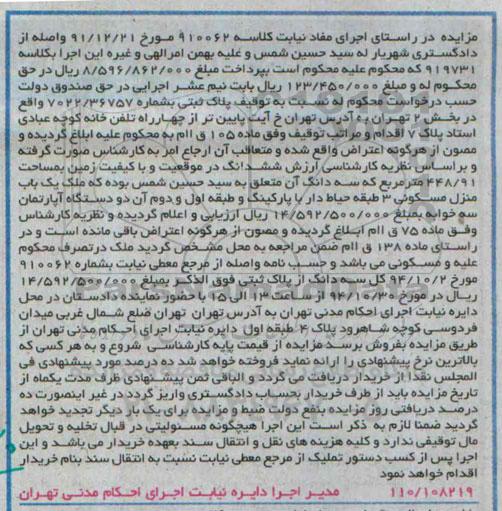 مزایده در راستای اجرای مفاد نیابت کلاسه ۹۱۰۰۶۲ مورخ ۹۱/۱۲/۲۱ واصله از
دادگستری شهریار له سید حسین شمس و علیه بهمن امرالهی و غیره این اجرا بکلاسه
۹۱۹۷۳۱ که محکوم علیه محکوم است بپرداخت مبلغ ۸/۵۹۶/۸۶۲/۰۰۰ ریال در حق
محکوم له و مبلغ ۱۲۳/۴۵۰/۰۰۰ ریال بابت نیم عشر اجرایی در حق صندوق دولت
حسب درخواست محکوم له نسبت به توقیف پلاک ثبتی بشماره ۷۰۲۲/۳۶۷۵۷ واقع
در بخش ۲ تهران به آدرس تهران خ آیت پایین تر از چهارراه تلفن خانه کوچه عبادی
استاد پلاک ۷ اقدام و مراتب توقیف وفق ماده ۱۰۵ ق اام به محکوم علیه ابلاغ گردیده و
مصون از هرگونه اعتراض واقع شده و متعاقب آن ارجاع امر به کارشناس صورت گرفته
و براساس نظریه کارشناسی ارزش ششدانگ در موقعیت و با کیفیت زمین بمساحت
۴۴۸/۹۱ مترمربع که سه دانگ آن متعلق به سید حسین شمس بوده که ملک یک باب
منزل مسکونی ۳ طبقه حیاط دار با پارکینگ و طبقه اول و دوم آن دو دستگاه آپارتمان
سه خوابه بمبلغ ۱۴/۵۹۲/۵۰۰/۰۰۰ ریال ارزیابی و اعلام گردیده و نظریه کارشناس
وفق ماده ۷۵ ق اام ابلاغ گردیده و مصون از هرگونه اعتراض باقی مانده است و در
راستای ماده ۱۳۸ ق اام ضمن مراجعه به محل مشخص گردید ملک درتصرف محکوم
علیه و مسکونی می باشد و حسب نامه واصله از مرجع معطی نیابت بشماره ۹۱۰۰۶۲
مورخ ۹۴/۱۰/۲ کل سه دانگ از پلاک ثبتی فوق الذکر بمبلغ ۱۴/۵۹۲/۵۰۰/۰۰۰
ریال در مورخ ۹۴/۱۰/۳۰ از ساعت ۱۳ الی ۱۵ با حضور نماینده دادستان در محل
دایره نیابت اجرای احکام مدنی تهران به آدرس تهران تهران ضلع شمال غربی میدان
فردوسی کوچه شاهرود پلاک ۴ طبقه اول دایره نیابت اجرای احکام مدنی تهران از
طریق مزایده بفروش برسد مزایده از قیمت پایه کارشناسی شروع و به هر کسی که
بالاترین نرخ پیشنهادی را ارائه نماید فروخته خواهد شد ده درصد مورد پیشنهادی فی
المجلس نقدا از خریدار دریافت می گردد و الباقی ثمن پیشنهادی ظرف مدت یکماه از
تاریخ مزایده باید از طرف خریدار بحساب دادگستری واریز گردد در غیر اینصورت ده
درصد دریافتی روز مزایده بنفع دولت ضبط و مزایده برای یک بار دیگر تجدید خواهد
گردید ضمنا لازم به ذکر است این اجرا هیچگونه مسئولیتی در قبال تخلیه و تحویل
مال توقیفی ندارد و کلیه هزینه های نقل و انتقال سند بعهده خریدار می باشد و این
اجرا پس از کسب دستور تملیک از مرجع معطی نیابت نسبت به انتقال سند بنام خریدار
اقدام خواهد نمود
۱۱۰/۱۰۸۲۱۹ مدیر اجرا دایره نیابت اجرای احکام مدنی تهران